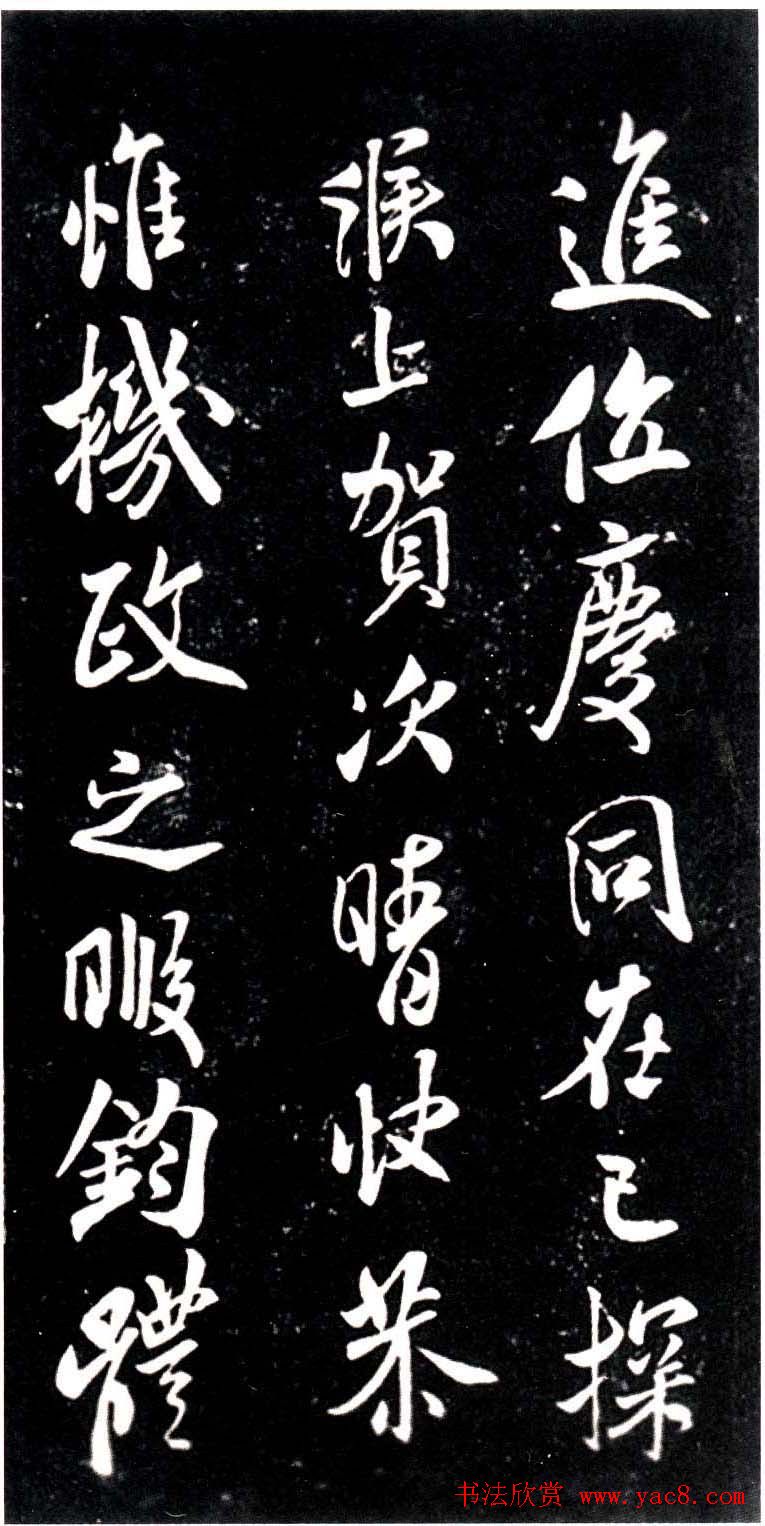 進位慶同在己探
候上賀次晴快恭
惟機政之暇鈞體
书法欣赏 www.yac8.com